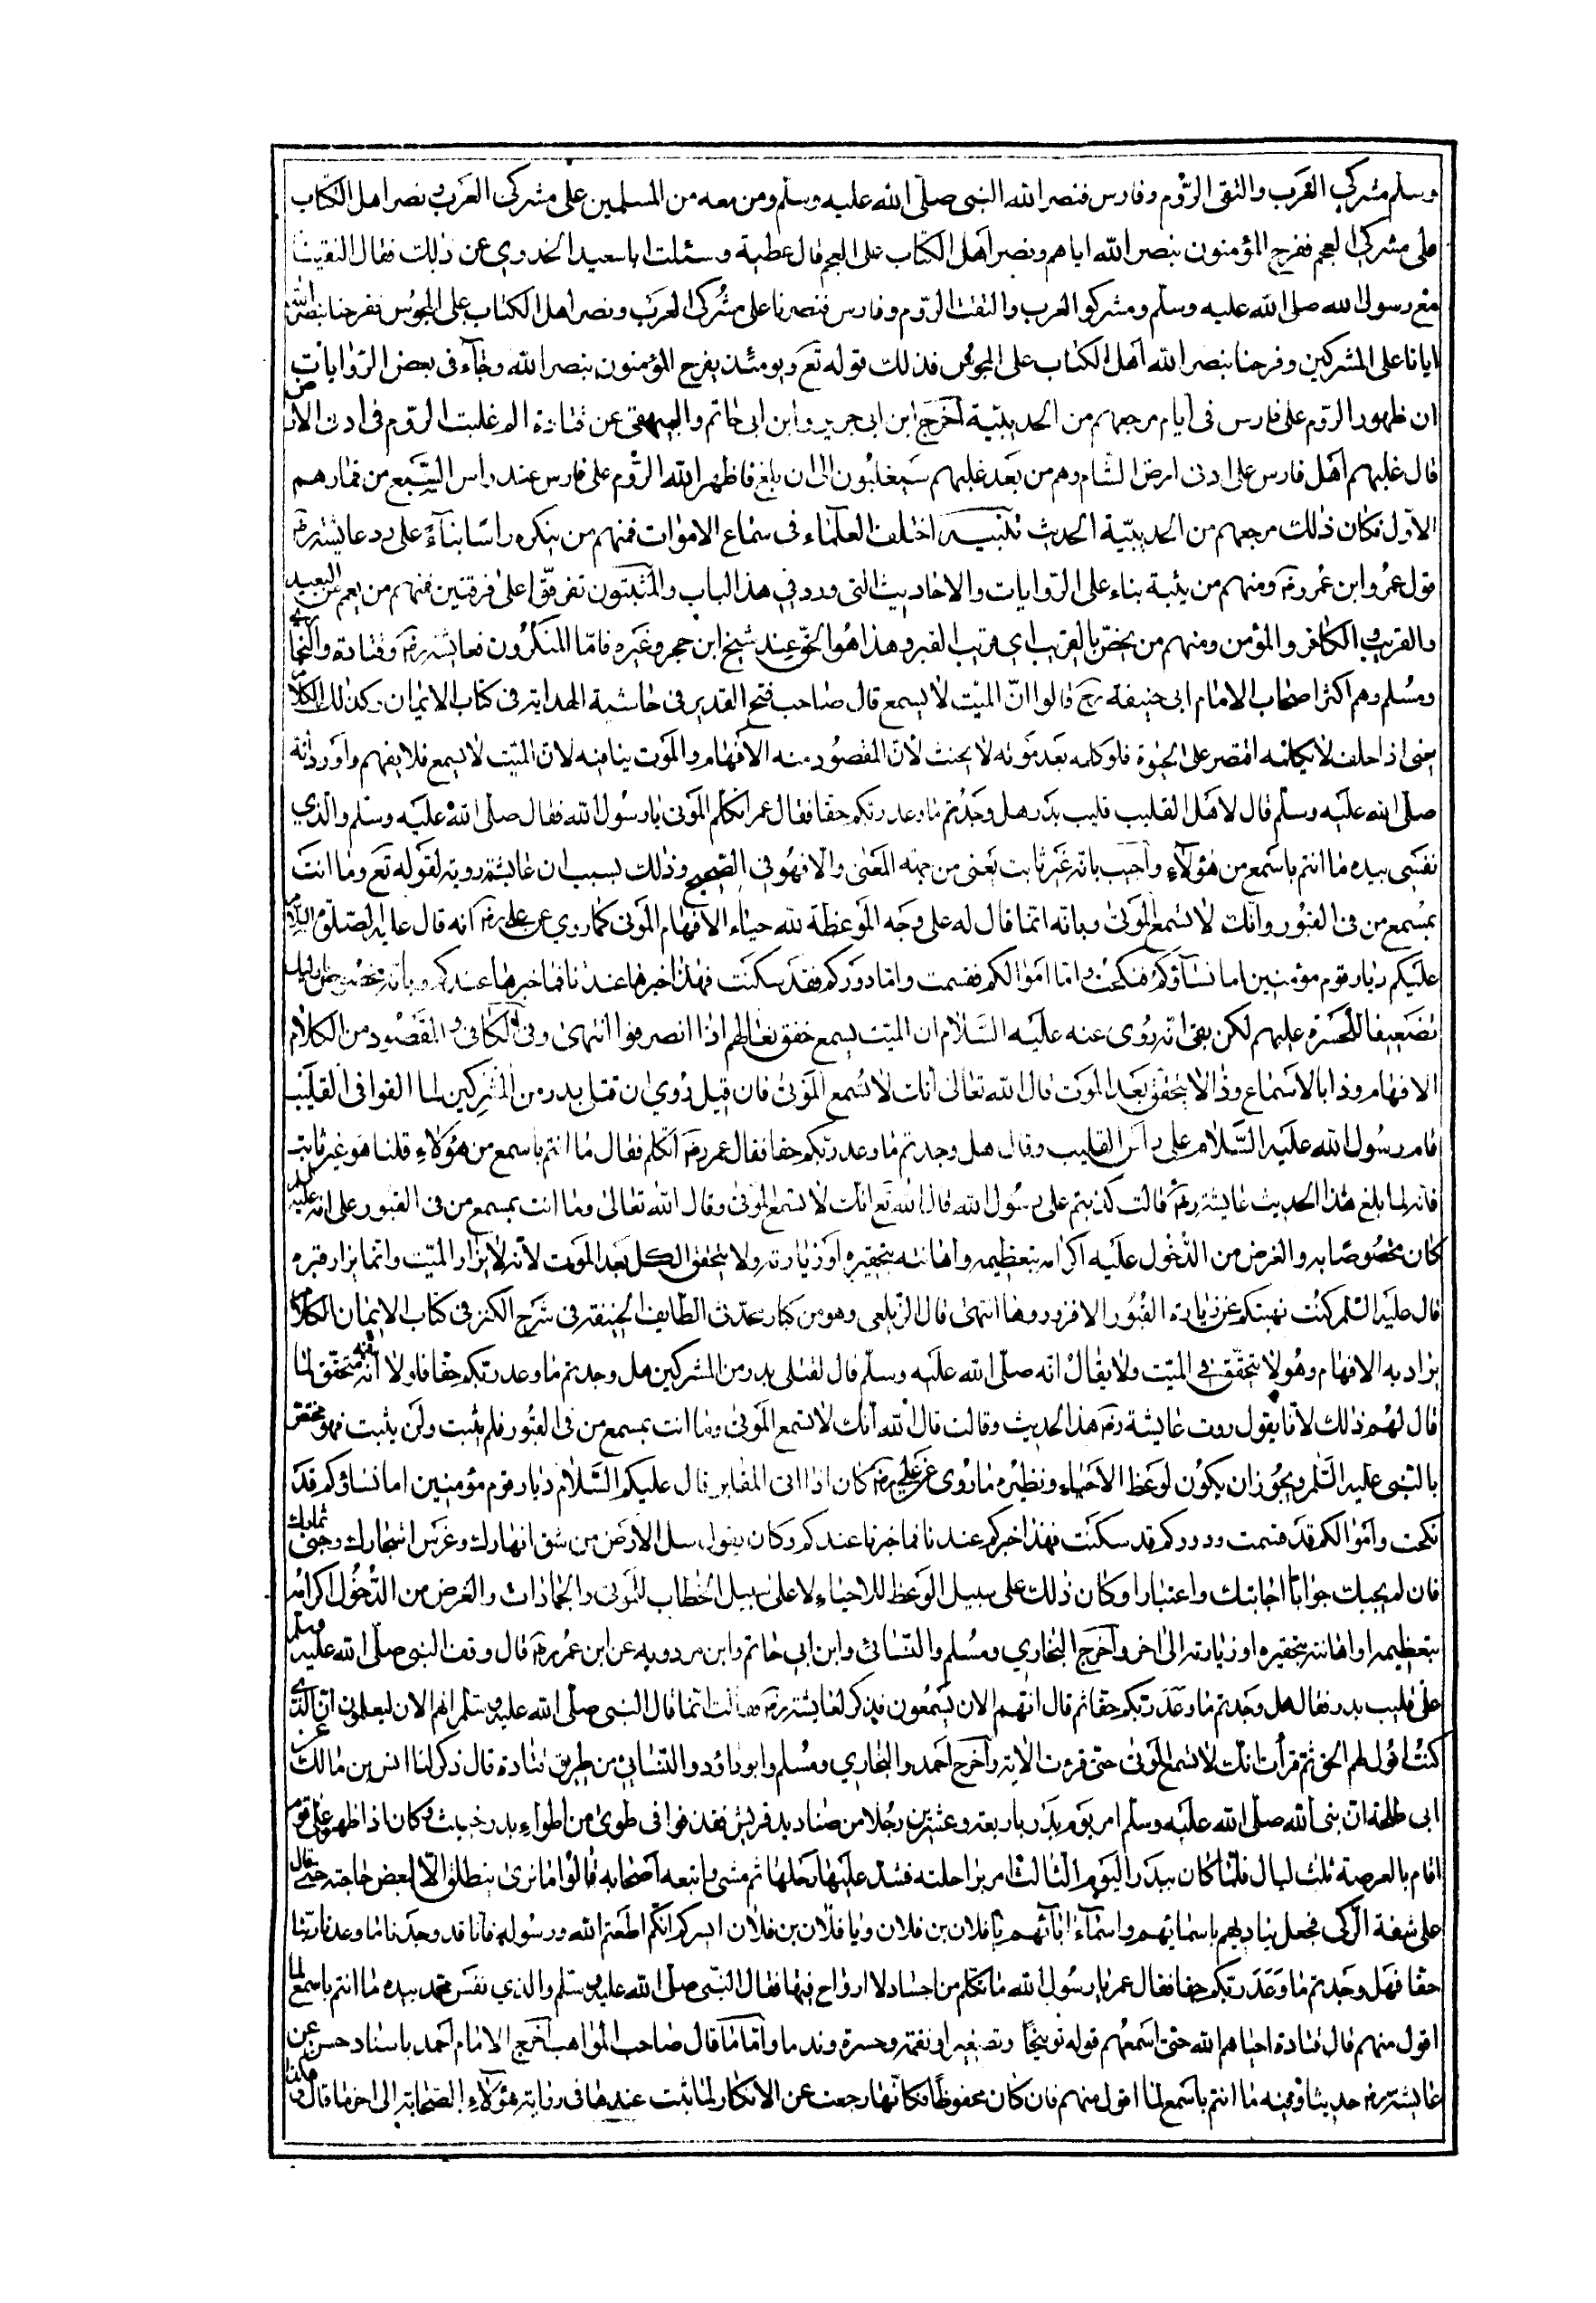 وسلم مشركي العرب والتقى الروم وفارس فنصر الله النبى صلى الله عليه وسلم ومن معه من المسلمين على مشركى العرب ونصر اهل الكتاب
على مشركى العجم ففرح المؤمنون بنصر الله اياهم ونصر اهل الكتاب على العجم قال عطية وسئلت ابا سعيد الخدري عن ذلك فقال التقينا
مع رسول الله صلى الله عليه وسلم ومشركو العرب والتقت الروم وفارس فنصرنا على مشركى العرب ونصر اهل الكتاب على المجوس ففرحنا بنصر الله
ايانا على المشركين وفرحنا بنصر الله اهل الكتاب على المجوس فذلك قوله تع ويومئذ يفرح المؤمنون بنصر الله وجاء فى بعض الروايات
ان ظهور الروم على فارس فى ايام مرجعهم من الحديبية اخرج ابن ابى جرير وابن ابى حاتم والبيهقى عن قتادة الم غلبت الروم فى ادنى الارض
قال غلبهم اهل فارس على ادنى ارض الشام وهم من بعد غلبهم سيغلبون الى ان بلغ فاظهر الله الروم على فارس عند راس السبع من قمارهم
الاول فكان ذلك مرجعهم من الحديبية الحديث تنبيه اختلف العلماء فى سماع الاموات فمنهم من ينكره راسا بناء على رد عايشة رض
قول عمر وابن عمر رض ومنهم من يثبته بناء على الروايات والاحاديث التى ورد في هذا الباب والمثبتون تفرقوا على فرقتين فمنهم من يعم عن البعيد
والقريب والكافر والمؤمن ومنهم من يخص بالقريب اى قريب القبر وهذا هو الحق عند شيخ ابن حجر وغيره فاما المنكرون فعايشة رض وقتادة والبخارى
ومسلم وهم اكثر اصحاب الامام ابى حنيفة رح قالوا ان الميت لا يسمع قال صاحب فتح القدير فى حاشية الهداية فى كتاب الايمان وكذلك الكلام
يعنى اذا حلف لا يكلمه اقتصر على الحيوة فلو كلمه بعد موته لا يحنث لان المقصود منه الافهام والموت ينافيه لان الميت لا يسمع فلا يفهم واورد انه
صلى الله عليه وسلم قال لاهل القليب قليب بدر هل وجدتم ما وعد ربكم حقا فقال عمر اتكلم الموتى يا رسول الله فقال صلى الله عليه وسلم والذي
نفسى بيده ما انتم باسمع من هؤلاء واجيب بانه غير ثابت يعنى من جهة المعنى والا فهو في الصحيح وذلك بسبب ان عايشة ردته لقوله تع وما انت
بمسمع من فى القبور وانك لا تسمع الموتى وبانه انما قال له على وجه الموعظة لله حياء الافهام الموتى كما روي عن على رض انه قال عليه الصلوة والسلام
عليكم ديار قوم مؤمنين اما نساؤكم فنكحت واما اموالكم فقسمت واما دوركم فقد سكنت فهذا خبرها عندنا فما خبرها عندكم وبانه مخصوص
تضعيفا للحسرة عليهم لكن بقى انه روى عنه عليه السلام ان الميت يسمع خفق نعالهم اذا انصرفوا انتهى وفى الكافى والمقصود من الكلام
الافهام وذا بالاسماع وذا لا يتحقق بعد الموت قال الله تعالى انك لا تسمع الموتى فان قيل روي ان قتلى بدر من المشركين لما القوا فى القليب
قام رسول الله عليه السلام على راس القليب وقال هل وجدتم ما وعد ربكم حقا فقال عمر رض اتكلم فقال ما انتم باسمع من هؤلاء قلنا هو غير ثابت
فانه لما بلغ هذا الحديث عايشة رض قالت كذبتم على رسول الله قال الله تع انك لا تسمع الموتى وقال الله تعالى وما انت بمسمع من فى القبور على انه عليه السلم
كان مخصوصا به والغرض من الدخول عليه اكرامه بتعظيمه واهانته بتحقيره او زيارته ولا يتحقق الكل بعد الموت لانه لا يزار الميت وانما يزار قبره
قال عليه السلم كنت نهيتكم عن زيارة القبور الا فزوروها انتهى قال الزيلعى وهو من كبار محدثى الطايف الحنيفة فى شرح الكنز فى كتاب الايمان الكلام
يراد به الافهام وهو لا يتحقق في الميت ولا يقال انه صلى الله عليه وسلم قال لقتلى بدر من المشركين هل وجدتم ما وعد ربكم حقا فلولا انه متحقق لما
قال لهم ذلك لانا نقول روت عايشة رض هذا الحديث وقالت قال الله انك لا تسمع الموتى وما انت بمسمع من فى القبور فلم يثبت ولئن يثبت فهو مختص
بالنبى عليه السلم ويجوز ان يكون لوعظ الاحياء ونظيره ما روى عن على رض كان اذا اتى المقابر قال عليكم السلام ديار قوم مؤمنين اما نساؤكم قد
نكحت واموالكم قد قسمت ودوركم قد سكنت فهذا خبركم عندنا فما خبرنا عندكم وكان يقول سل الارض من شق انهارك وغرس اشجارك وجنى ثمارك
فان لم يجبك جوابا اجابتك واعتبارا وكان ذلك على سبيل الوعظ للاحياء لا على سبيل الخطاب للموتى والجمادات والغرض من الدخول اكرامه
بتعظيمه او اهانته بتحقيره او زيارته الى اخر واخرج البخاري ومسلم والنسائى وابن ابى حاتم وابن مردويه عن ابن عمر رض قال وقف النبى صلى الله عليه وسلم
على قليب بدر فقال هل وجدتم ما وعد ربكم حقا ثم قال انهم الان يسمعون فذكر لعايشة رض فقالت انما قال النبى صلى الله عليه وسلم انهم الان ليعلمون ان الذى
كنت اقول لهم الحق ثم قرات انك لا تسمع الموتى حتى قرءت الاية واخرج احمد والبخاري ومسلم وابو داؤد والنسائى من طريق قتادة قال ذكر لنا انس بن مالك عن
ابى طلحة ان نبى الله صلى الله عليه وسلم امر يوم بدر باربعة وعشرين رجلا من صناديد قريش فقذفوا فى طوى من اطواء بدر خبيث وكان اذا ظهر على قوم
اقام بالعرصة ثلث ليال فلما كان ببدر اليوم الثالث امر براحلته فشد عليها رحلها ثم مشى واتبعه اصحابه قالوا ما نرى ينطلق الا لبعض حاجته حتى قال
على شفة الركى فجعل يناديهم باسمائهم واسماء ابائهم يا فلان بن فلان ويا فلان بن فلان ايسركم انكم اطعتم الله ورسوله فانا قد وجدنا ما وعدنا ربنا
حقا فهل وجدتم ما وعد ربكم حقا فقال عمر يا رسول الله ما تكلم من اجساد لا ارواح فيها فقال النبى صلى الله عليه وسلم والذي نفس محمد بيده ما انتم باسمع لما
اقول منهم قال قتادة احياهم الله حتى اسمعهم قوله توبيخا وتصغيرا ونقمة وحسرة وندما واما ما قال صاحب المواهب اخرج الامام احمد باسناد حسن عن
عايشة رض حديثا وفيه ما انتم باسمع لما اقول منهم فان كان محفوظا فكانها رجعت عن الانكار لما ثبت عندها فى رواية هؤلاء الصحابة الى اخر ما قال